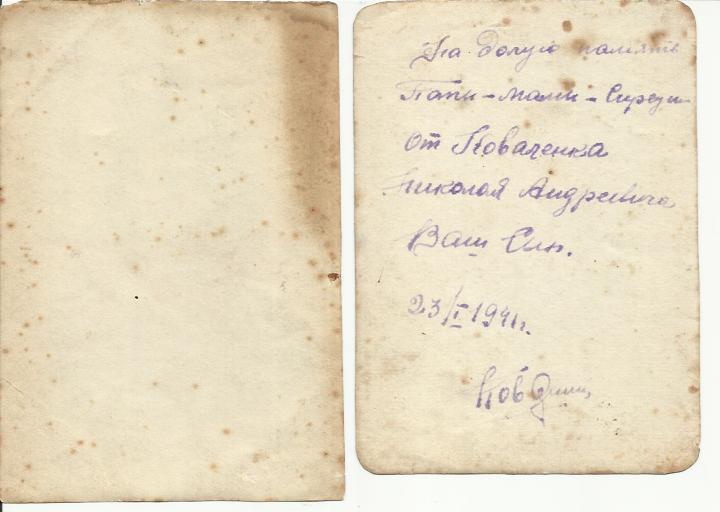 На Долую память
Папы - Мамы -
От Коваченка
Николая Андреевича
Ваш Сын.
23/I 1941г.